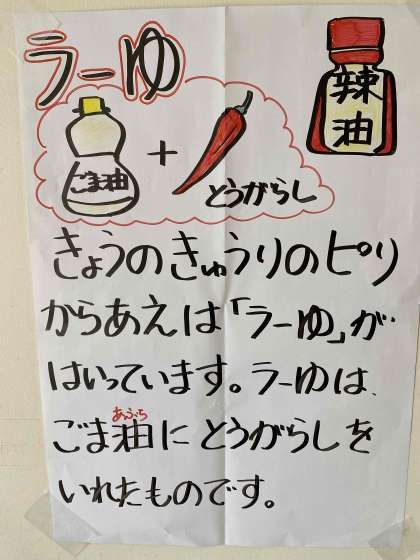 ラーゆ
辣油
ごま油
+
とうがらし
きょうのきゅうりのピリ
からあえは「ラーゆ」が
はいっています。ラーゆは、
あぶら
ごま油にとうがらしを
いれたものです。